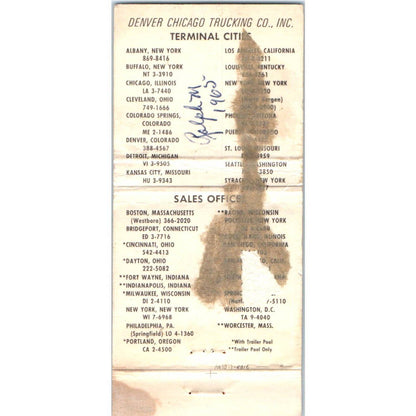 DENVER CHICAGO TRUCKING CO., INC.
TERMINAL CITIES
ALBANY, NEW YORK
869-8416
BUFFALO, NEW YORK
NT 3-3910
CHICAGO, ILLINOIS
LA 3-7440
CLEVELAND, OHIO
749-1666
COLORADO SPRINGS,
COLORADO
ME 2-1486
DENVER, COLORADO
388-4567
DETROIT, MICHIGAN
VI 3-9505
KANSAS CITY, MISSOURI
HU 3-9343
LOS ANGELES, CALIFORNIA
LOUISVILLE, KENTUCKY
NEW YORK, NEW YORK
ST. LOUIS, MISSOURI
SEATTLE, WASHINGTON
3850
SYRACUSE, NEW YORK
Ralph M.
1965
SALES OFFICES
BOSTON, MASSACHUSETTS
(Westboro) 366-2020
BRIDGEPORT, CONNECTICUT
ED 3-7716
*CINCINNATI, OHIO
542-4413
*DAYTON, OHIO
222-5082
**FORT WAYNE, INDIANA
**INDIANAPOLIS, INDIANA
*MILWAUKEE, WISCONSIN
DI 2-4110
NEW YORK, NEW YORK
WI 7-6968
PHILADELPHIA, PA.
(Springfield) LO 4-1360
*PORTLAND, OREGON
CA 2-4500
WISCONSIN
NEW YORK
ILLINOIS
CALIFORNIA
-5110
WASHINGTON, D.C.
TA 9-4040
**WORCESTER, MASS.
*With Trailer Pool
**Trailer Pool Only